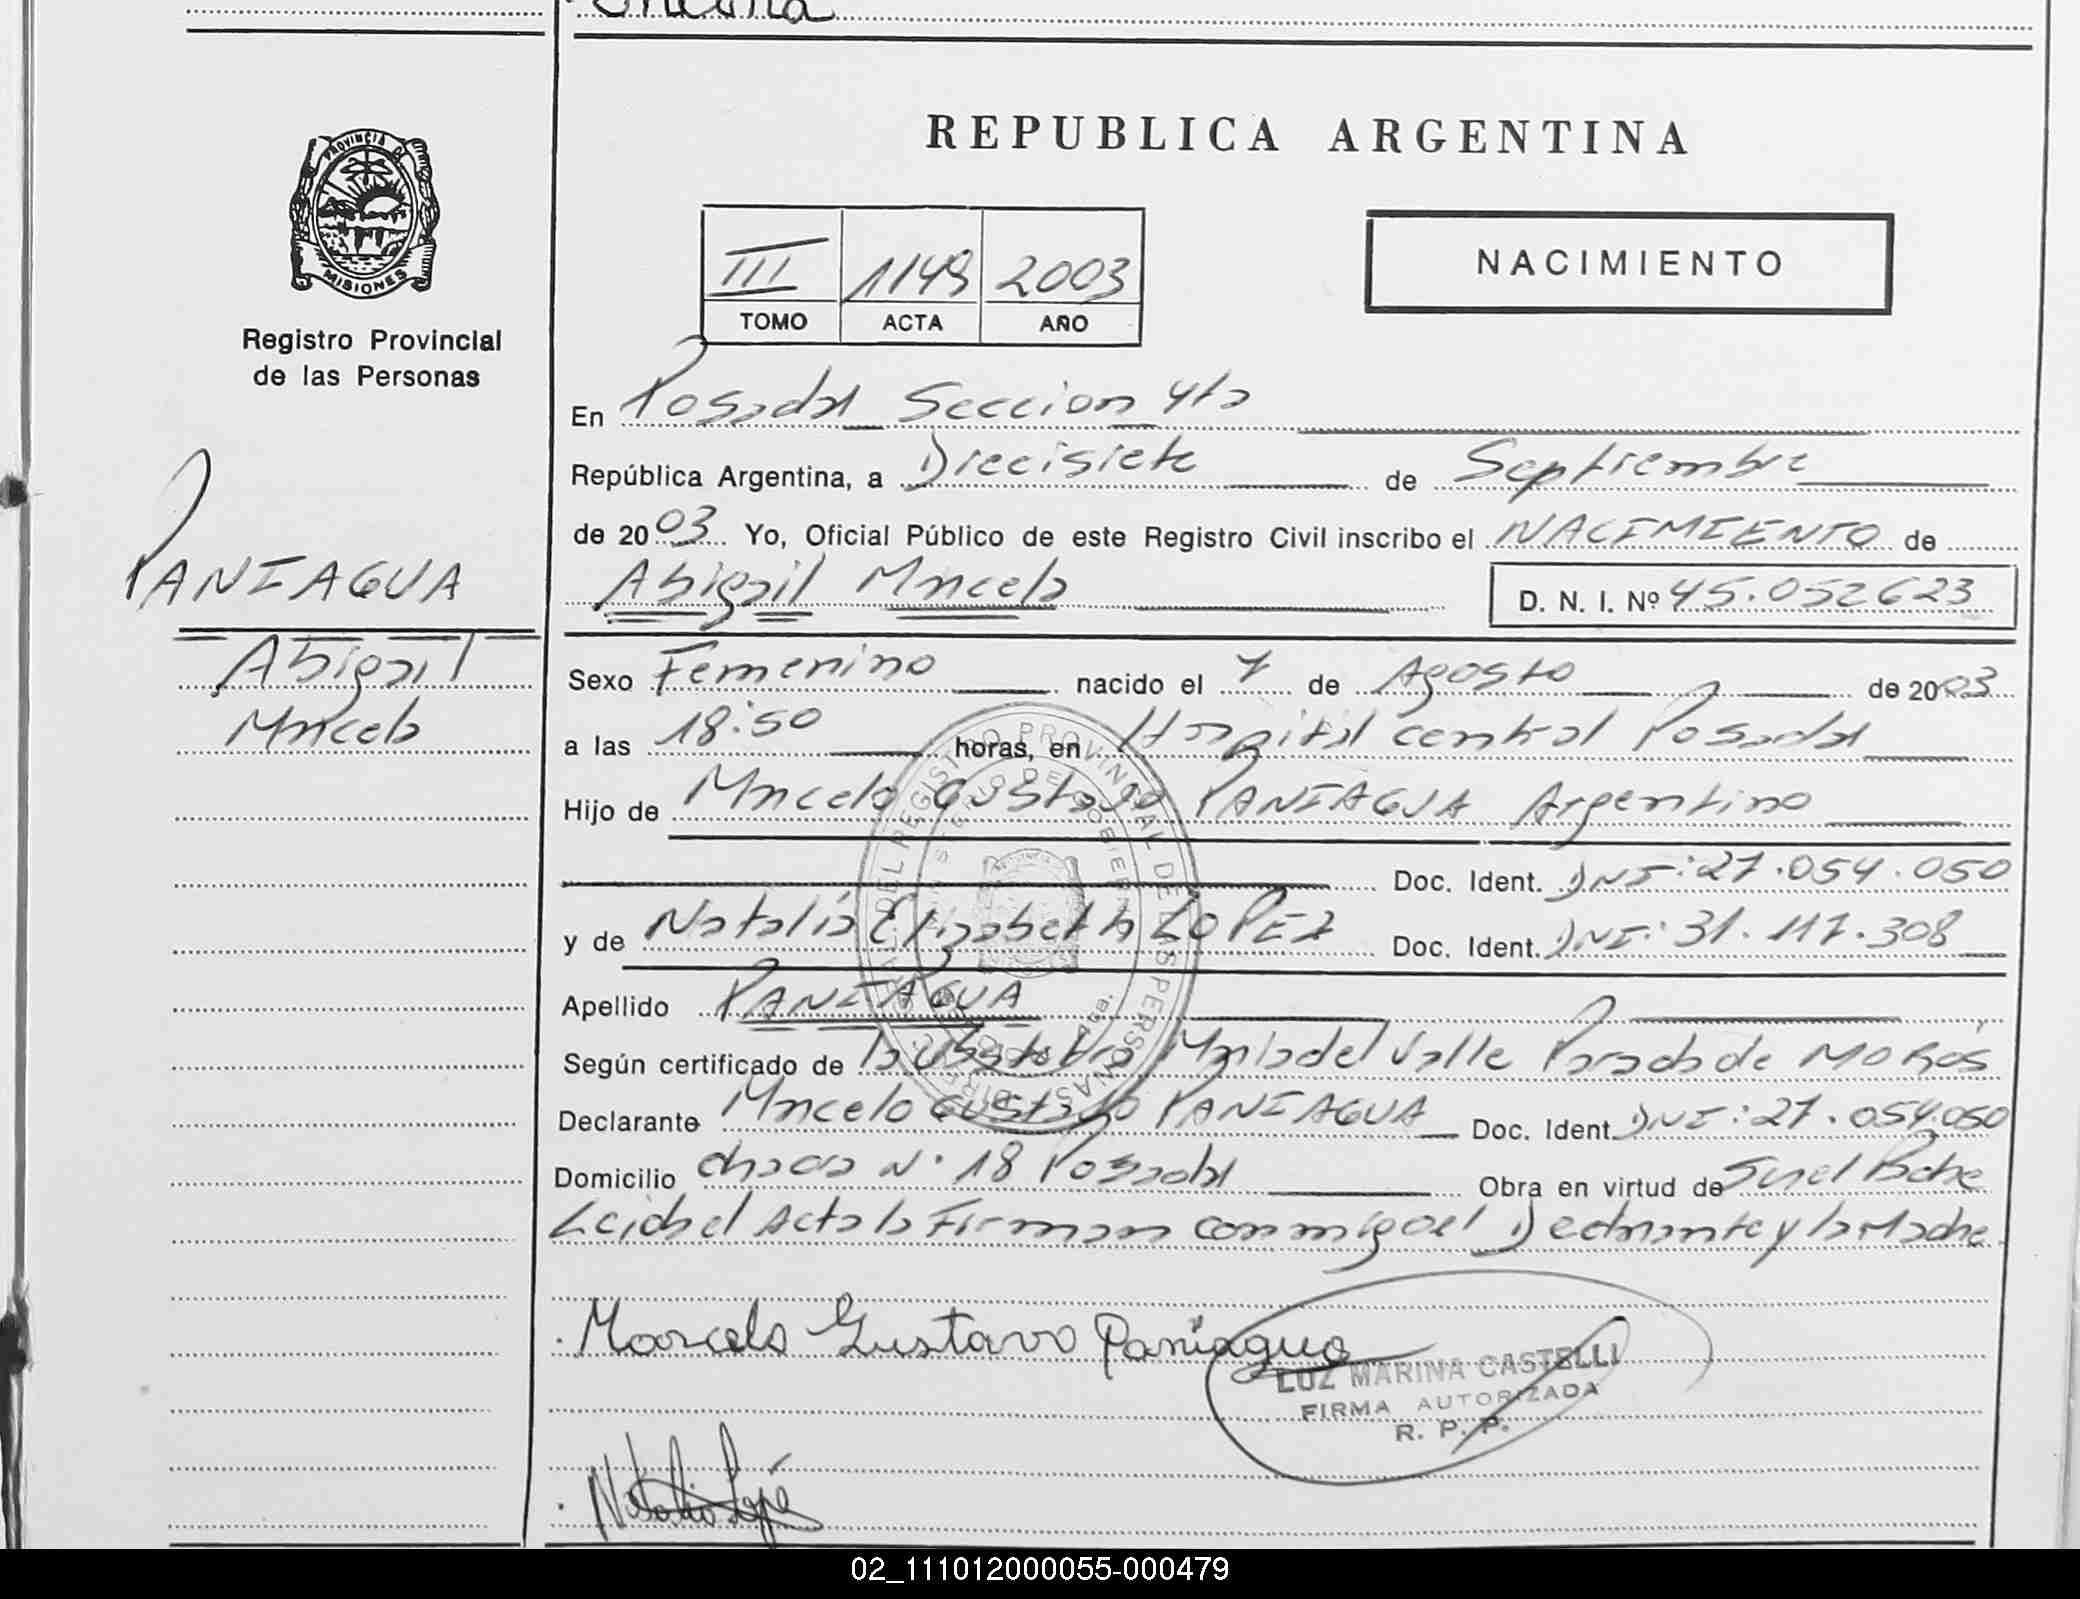 REPUBLICA ARGENTINA
PROVINCIA DE
MISIONES
Registro Provincial
de las Personas
III 1149 2003
TOMO ACTA AÑO
NACIMIENTO
PANIAGUA
Abigail
Marcela
En Posadas Seccion 4ta
República Argentina, a Diecisiete de Septiembre
de 2003 Yo, Oficial Público de este Registro Civil inscribo el NACIMIENTO de
Abigail Marcela D. N. I. Nº 45.052623
Sexo Femenino nacido el 7 de Agosto de 2003
a las 18:50 horas, en Hospital central Posadas
Hijo de Marcelo Gustavo PANIAGUA Argentino
Doc. Ident. DNI: 27.054.050
y de Natalia Elizabeth LOPEZ Doc. Ident. DNI: 31.117.308
Apellido PANIAGUA
Según certificado de la Obstetra Maria del Valle Parada de
Declarante Marcelo Gustavo PANIAGUA Doc. Ident. DNI: 27.054.050
Domicilio chacra Nº 18 Posadas Obra en virtud de Ser el Padre
Leida el Acta la Firman conmigo el Declarante y la Madre
Marcelo Gustavo Paniagua
LUZ MARINA CASTELLI
FIRMA AUTORIZADA
R. P. P.
Natalia Lopez
02_111012000055-000479